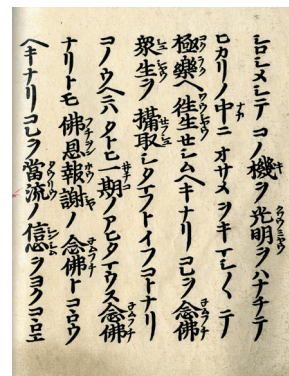 シロシメシテコノ機ヲ光明ヲハナチテ
ヒカリノ中ニオサメヲキマシ〱テ
極樂ヘ往生セシムヘキナリコレヲ念佛
衆生ヲ攝取シタマフトイフコトナリ
コノウヘニハタトヒ一期ノアヒタマウス念佛
ナリトモ佛恩報謝ノ念佛トコヽロウ
ヘキナリコレヲ當流ノ信ヲヨクコヽロエ